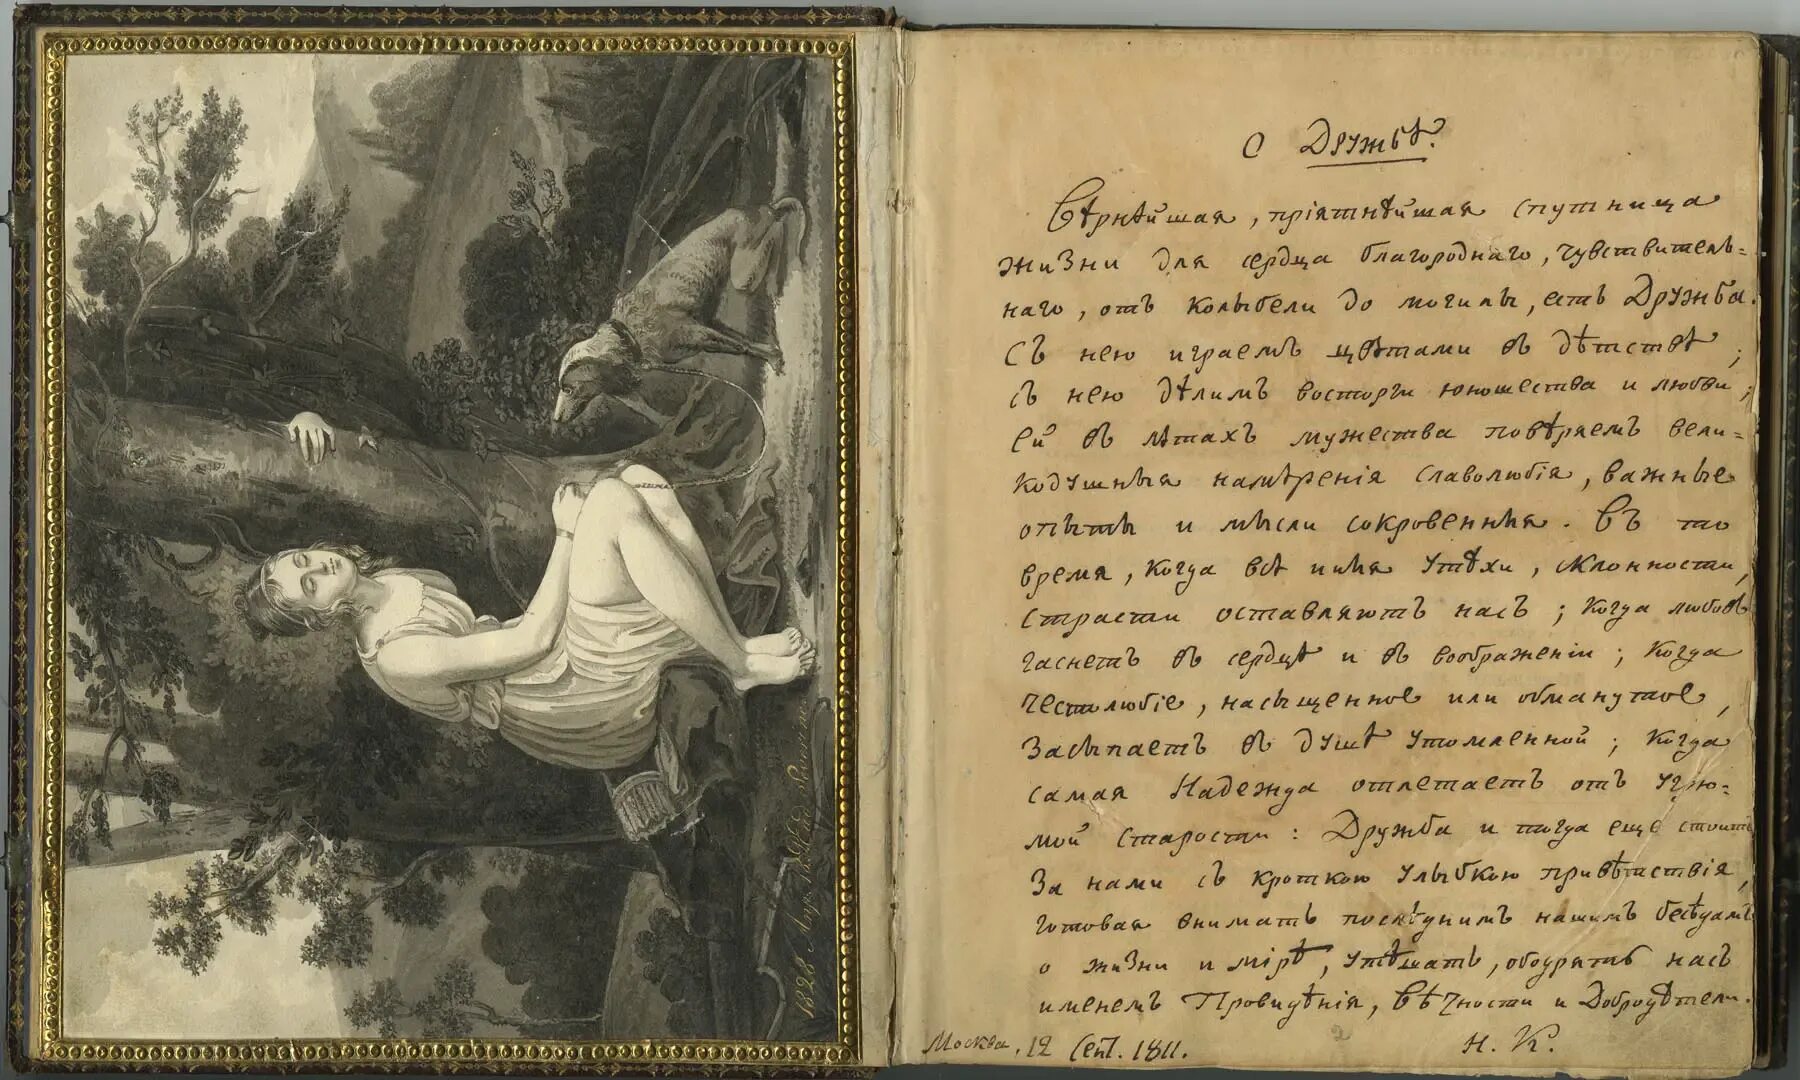 О Дружбѣ.
Вѣрнѣйшая, пріятнѣйшая спутница
жизни для сердца благороднаго, чувствитель=
наго, отъ колыбели до могилы, есть Дружба.
Съ нею играемъ цвѣтами въ дѣтствѣ;
съ нею дѣлимъ восторги юношества и любви;
ей въ лѣтахъ мужества повѣряемъ вели=
кодушныя намѣренія славолюбія, важные
опыты и мысли сокровенныя. Въ то
время, когда всѣ иныя утѣхи, склонности,
страсти оставляютъ насъ; когда любовь
гаснетъ въ сердцѣ и въ воображеніи; когда
честолюбіе, насыщенное или обманутое,
засыпаетъ въ душѣ утомленной; когда
самая Надежда отлетаетъ отъ угрю=
мой старости: Дружба и тогда еще стоитъ
за нами съ кроткою улыбкою привѣтствія,
готовая внимать послѣднимъ нашимъ бесѣдамъ
о жизни и мірѣ, утѣшать, ободрять насъ
именемъ Провидѣнія, вѣчности и Добродѣтели.
Н. К.
Москва. 12 Сент. 1811.
1828